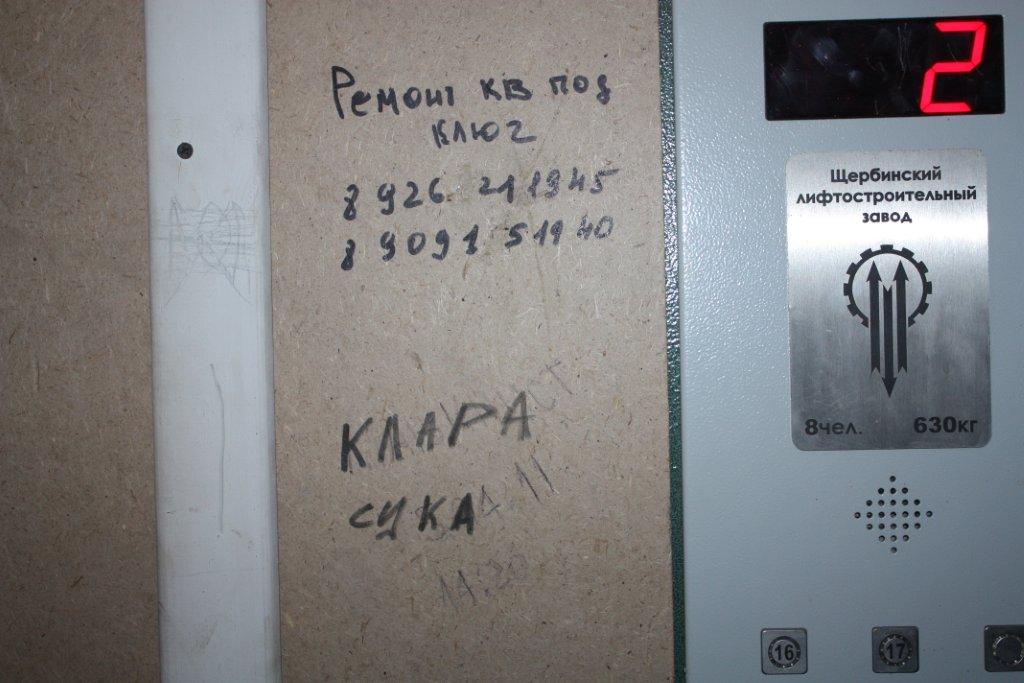 Ремонт кв под
ключ
8 926 21 19 45
8 909 1 51940
КЛАРА
СУКА
11:20
2
Щербинский
лифтостроительный
завод
8чел. 630кг
16 17